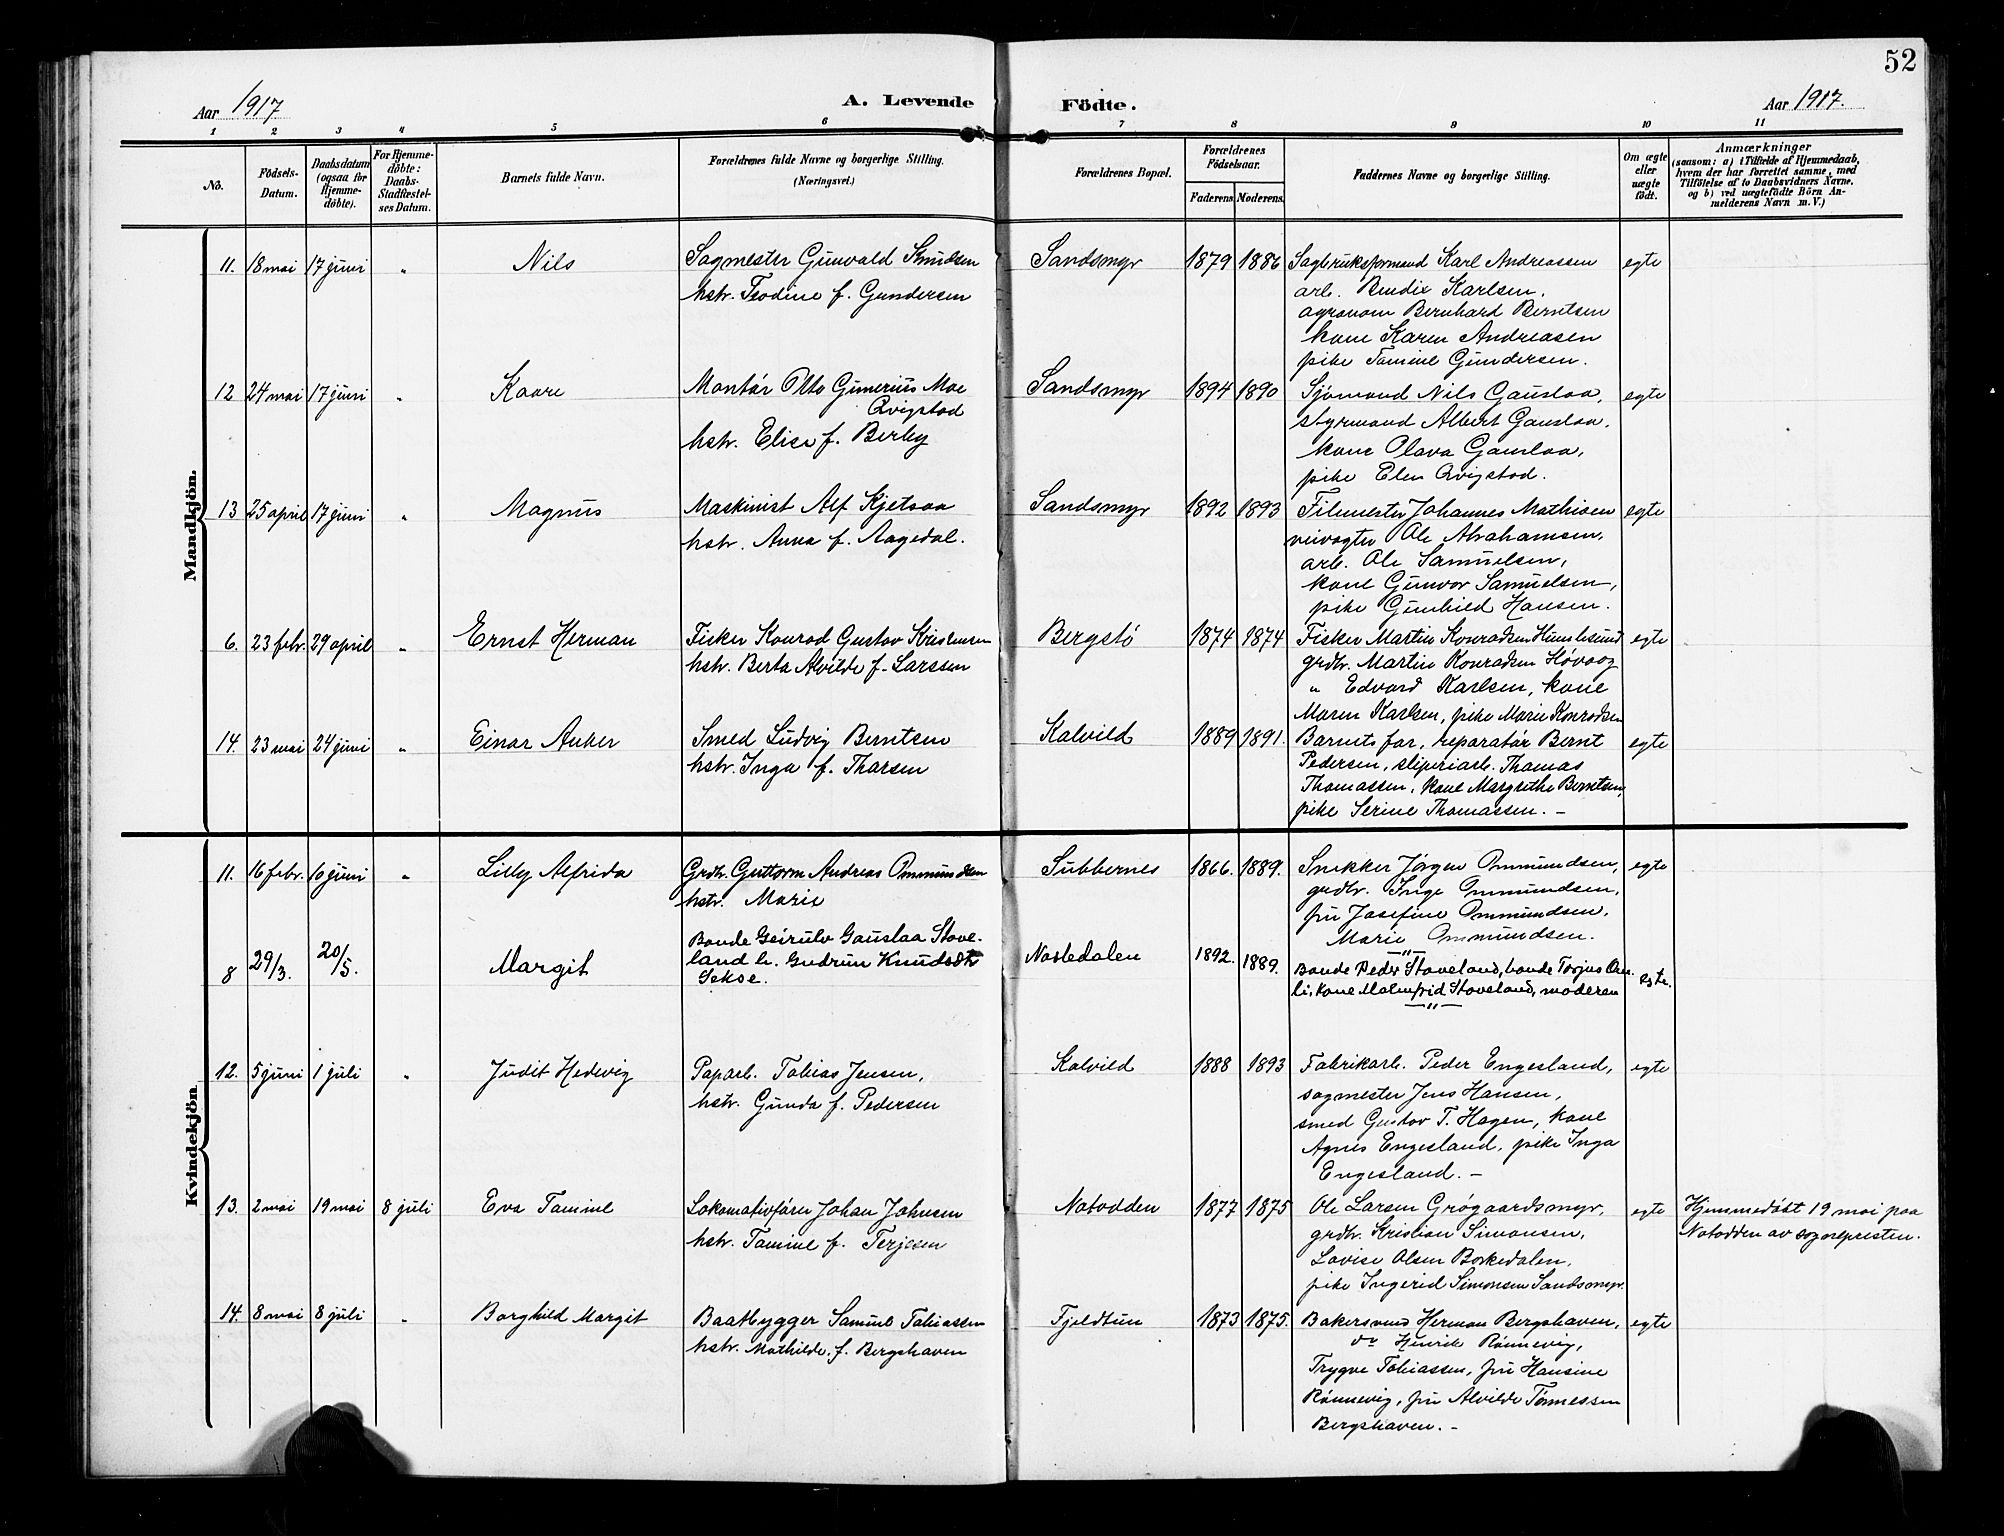 52
Aar 1917
A. Levende
Födte.
Aar 1917.
1 2 3 4 5 6 7 8 9 10 11
No.
Födsels-
Datum.
Daabsdatum
(ogsaa for
Hjemme-
döbte).
For Hjemme-
döbte:
Daabs-
Stadfæstel-
ses Datum.
Barnets fulde Navn.
Forældrenes fulde Navne og borgerlige Stilling.
(Næringsvei.)
Forældrenes Bopæl.
Forældrenes
Födselsaar.
Faderens. Moderens.
Faddernes Navne og borgerlige Stilling.
Om ægte
eller
uægte
födt.
Anmærkninger
(saasom: a) i Tilfælde af Hjemmedaab,
hvem der har forrettet samme, med
Tilföielse af to Daabsvidners Navne,
og b) ved uægtefödte Börn An-
melderens Navn m. V.)
Mandkjön.
11. 18 mai 17 juni " Nils
Sagmester Gunvald Knudsen
hstr. Teodine f. Gundersen
Sandsmyr 1879 1886
Sagbruksformand Karl Andreassen
arb. Bendix Karlsen,
agronom Bernhard Berntsen
kone Karen Andreasen
pike Tomine Gundersen.
egte
12 24 mai 17 juni " Kaare
Montør Otto Gunerius Moe
Qvigstad
hstr. Elise f. Berby
Sandsmyr 1894 1890
Sjømand Nils Gauslaa,
styrmand Albert Gauslaa,
kone Olava Gauslaa,
pike Elen Qvigstad.
egte
13 25 april 17 juni " Magnus
Maskinist Alf Kjetsaa
hstr. Anna f. Aagedal.
Sandsmyr 1892 1893
Filmester Johannes Mathisen
veivogter Ole Abrahamsen,
arb. Ole Samuelsen,
kone Gunvor Samuelsen,
pike Gunhild Hansen.
egte
6. 23 febr. 29 april " Ernst Herman
Fisker Konrad Gustav Kristensen
hstr. Berta Alvilde f. Larssen
Bergstø 1874 1874
Fisker Martin Konradsen Humlesund
grdbr. Martin Konradsen Høvaag
" Edvard Karlsen, kone
Maren Karlsen, pike Marie Konradsen
egte
14. 23 mai 24 juni " Einar Anker
Smed Ludvig Berntsen
hstr. Inga f. Tharsen
Kalvild 1889 1891.
Barnets far, reparatør Bernt
Pedersen, sliperiarb. Thomas
Thomassen, kone Margrethe Berntsen,
pike Serine Thomassen. —
egte
Kvindekjön.
11. 16 febr. 6 juni " Lilly Alfrida
Grdbr. Guttorm Andreas Ommundsen
hstr. Marie
Subbernes 1866. 1889.
Snekker Jørgen Ommundsen,
grdbr. Inge Ommundsen,
fru Josefine Ommundsen,
Marie Ommundsen.
egte
8 29/3. 20/5. Margit
Bonde Geirulv Gauslaa Stove-
land h. Gudrun Knudsdtr
Sekse.
Nasledalen 1892. 1889.
Bonde Peder Stoveland, bonde Torjus
li, kone Malmfrid Stoveland, moderen
—"—
egte.
12. 5 juni 1 juli " Judit Hedvig
Paparb. Tobias Jensen,
hstr. Gunda f. Pedersen
Kalvild 1888 1893
Fabrikarb. Peder Engesland,
sagmester Jens Hansen,
smed Gustav T. Hagen, kone
Agnes Engesland, pike Inga
Engesland. —
egte
13. 2 mai 19 mai 8 juli Eva Tomine
Lokomotivfører Johan Johnsen
hstr. Tomine f. Terjesen
Notodden 1877 1875
Ole Larsen Grøgaardsmyr,
grdbr. Kristian Simonsen,
Lovise Olsen Borkedalen,
pike Ingerid Simonsen Sandsmyr.
egte
Hjemmedøbt 19 mai paa
Notodden av sognepresten.
14. 8 mai 8 juli " Borghild Margit
Baatbygger Samuel Tobiassen
hstr. Mathilde, f. Bergshaven
Fjeldtun 1873 1875.
Bakersvend Herman Bergshaven,
do Henrik Rønnevig,
Trygve Tobiassen, fru Hansine
Rønnevig, fru Alvilde Tønnessen
Bergshaven. —
egte